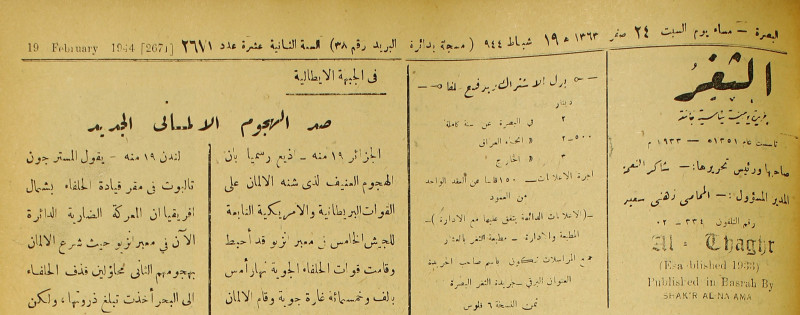 البصرة - مساء يوم السبت ٢٤ صفر ١٣٦٣ * ١٩ شباط ٩٤٤ ( مسجلة بدائرة البريد رقم ٣٨ ) السنة الثانية عشرة عدد ٢٦٧١ 19 February 1944 [2671]
الثغر
جريدة يومية سياسية جامعة
تأسست عام ١٣٥١ه - ١٩٣٣ م
صاحبها ورئيس تحريرها :- شاكر النعمة
المدير المسؤول :- المحامي زهني سفير
رقم التلفون ٣٣٤ - ٠٢
Al - Thaghr
(Established 1933)
Published in Basrah By
SHAK'R AL-NAAMA
بدل الاشتراك ويدفع سلفا
دينار
٢ في البصرة عن سنة كاملة
٢-٥٠٠ انحاء العراق
٣ الخارج
اجرة الاعلانات - ١٥٠ فلسا عن العقد الواحد
من العمود
-( الاعلانات الدائمة يتفق عليها مع الادارة )-
المطبعة والادارة - مطبعة الثغر بالعشار
جميع المراسلات تكون باسم صاحب الجريدة
العنوان البرقي - جريدة الثغر البصرة
ثمن النسخة ٦ فلوس
في الجبهة الايطالية
صد الهجوم الالماني الجديد
الجزائر ١٩ منه - اذيع رسميا بان
الهجوم العنيف لذى شنه الالمان على
القوات البريطانية والامريكية التابعة
للجيش الخامس في معبر انزيو قد أحبط
وقامت قوات الحلفاء الجوية نهار أمس
بالف وخمسمائة غارة جوية وقام الالمان
لندن ١٩ منه - يقول المستر جون
تالبوت في مقر قيادة الحلفاء بشمال
افريقيا ان المعركة الضارية الدائرة
الآن في معبر انزيو حيث شرع الالمان
بهجومهم الثاني محاولين قذف الحلفاء
الى البحر أخذت تبلغ ذروتها ، ولكن